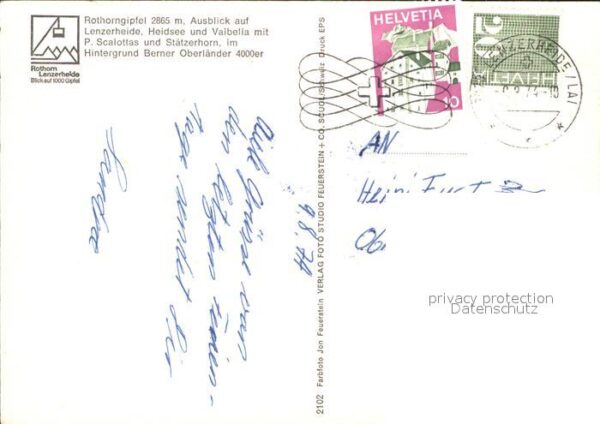 Rothorngipfel 2865 m, Ausblick auf
Lenzerheide, Heidsee und Valbella mit
P. Scalottas und Stätzerhorn, im
Hintergrund Berner Oberländer 4000er
Rothorn
Lenzerheide
Blick auf 1000 Gipfel
HELVETIA
10
20
HELVETIA
LENZERHEIDE/LAI
9.8.74
Viele Grüsse von
den letzten
tage sendet Dir
Sandra
2102 Farbfoto Jon Feuerstein VERLAG FOTO STUDIO FEUERSTEIN + CO. SCUOL/Schweiz Druck EPS
AN
Heini Furt
Ob.
privacy protection
Datenschutz